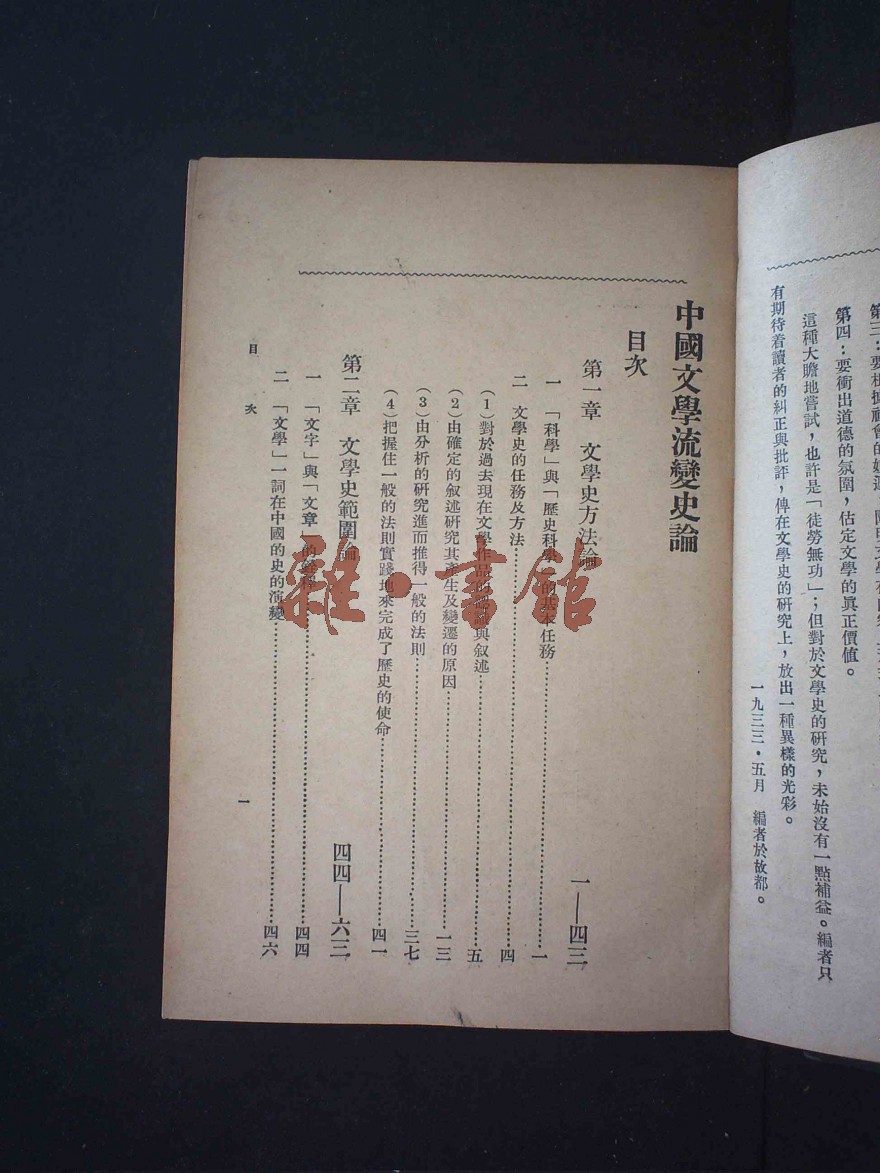 第四：要衝出道德的氛圍，估定文學的眞正價值。
這種大瞻地嘗試，也許是「徒勞無功」；但對於文學史的研究，未始沒有一點補益。編者只
有期待着讀者的糾正與批評，俾在文學史的研究上，放出一種異樣的光彩。
一九三三・五月　編者於故都。
中國文學流變史論
目次
第一章　文學史方法論 一—四三
一　「科學」與「歷史科學」的基本任務 一
二　文學史的任務及方法 四
（1）對於過去現在文學作品的認識與叙述 五
（2）由確定的叙述研究其產生及變遷的原因 一三
（3）由分析的研究進而推得一般的法則 三七
（4）把握住一般的法則實踐地來完成了歷史的使命 四一
第二章　文學史範圍論 四四—六三
一　「文字」與「文章」的 四四
二　「文學」一詞在中國的史的演變 四六
目次
一
雜·書館